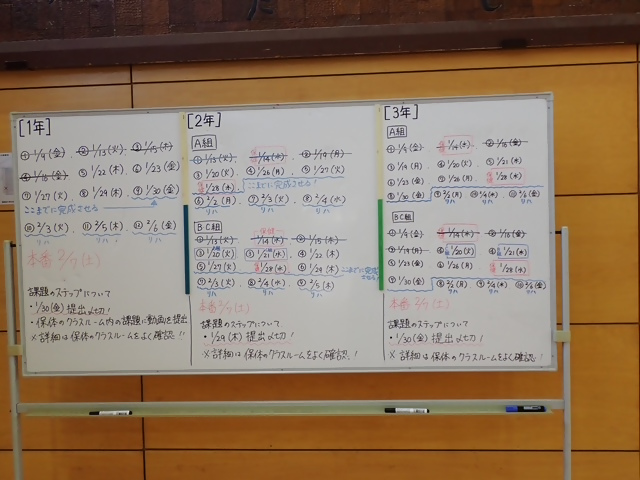 [1年]
① 1/9(金), ② 1/13(火), ③ 1/15(木)
④ 1/16(金), ⑤ 1/22(木), ⑥ 1/23(金)
⑦ 1/27(火), ⑧ 1/29(木), ⑨ 1/30(金)
ここまでに完成させる
⑩ 2/3(火), ⑪ 2/5(木), ⑫ 2/6(金)
リハ リハ リハ
本番 2/7(土)
課題のステップについて
・1/30(金)提出〆切!
・保体のクラスルーム内の課題に動画を提出
※詳細は保体のクラスルームをよく確認!!
[2年]
A組
① 1/13(火), 1/14(水), ② 1/19(月)
③ 1/20(火), ④ 1/26(月), ⑤ 1/27(火)
1/28(水) ここまでに完成させる!
⑥ 2/2(月), ⑦ 2/3(火), ⑧ 2/4(水)
リハ リハ リハ
BC組
保健
① 1/13(火), 1/14(水), ② 1/15(木)
③ 1/20(火), ③ 1/21(水), ④ 1/22(木)
⑤ 1/27(火) 1/28(水), ⑥ 1/29(木)
ここまでに完成させる!
⑦ 2/3(火), ⑧ 2/4(水), ⑨ 2/5(木)
リハ リハ リハ
本番 2/7(土)
課題のステップについて
・1/29(木)提出〆切!
※詳細は保体のクラスルームをよく確認!
[3年]
A組
① 1/9(金), 1/14(水), ② 1/16(金)
③ 1/19(月), ④ 1/20(火), ⑤ 1/21(水)
⑥ 1/23(金), ⑦ 1/26(月), 1/28(水)
⑧ 1/30(金), ⑨ 2/2(月) ⑩ 2/4(水) ⑪ 2/6(金)
リハ リハ リハ
BC組
① 1/9(金), 1/14(水), ② 1/16(金)
③ 1/19(月), ④ 1/20(火), 1/21(水)
⑤ 1/23(金), ⑥ 1/26(月), 1/28(水)
⑦ 1/30(金), ⑧ 2/2(月) ⑨ 2/4(水) ⑩ 2/6(金)
リハ リハ リハ
本番 2/7(土)
課題のステップについて
・1/30(金)提出〆切!
※詳細は保体のクラスルームをよく確認!